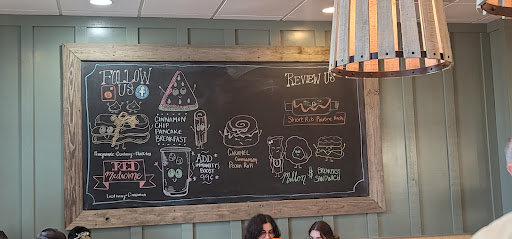 FOLLOW
US
CINNAMON
CHIP
PANCAKE
BREAKFAST
RED
Medicine
ADD
IMMUNITY
BOOST
99¢
CARAMEL
CINNAMON
Pecan Roll
REVIEW US
Short Rib
&
BREAKFAST
SANDWICH